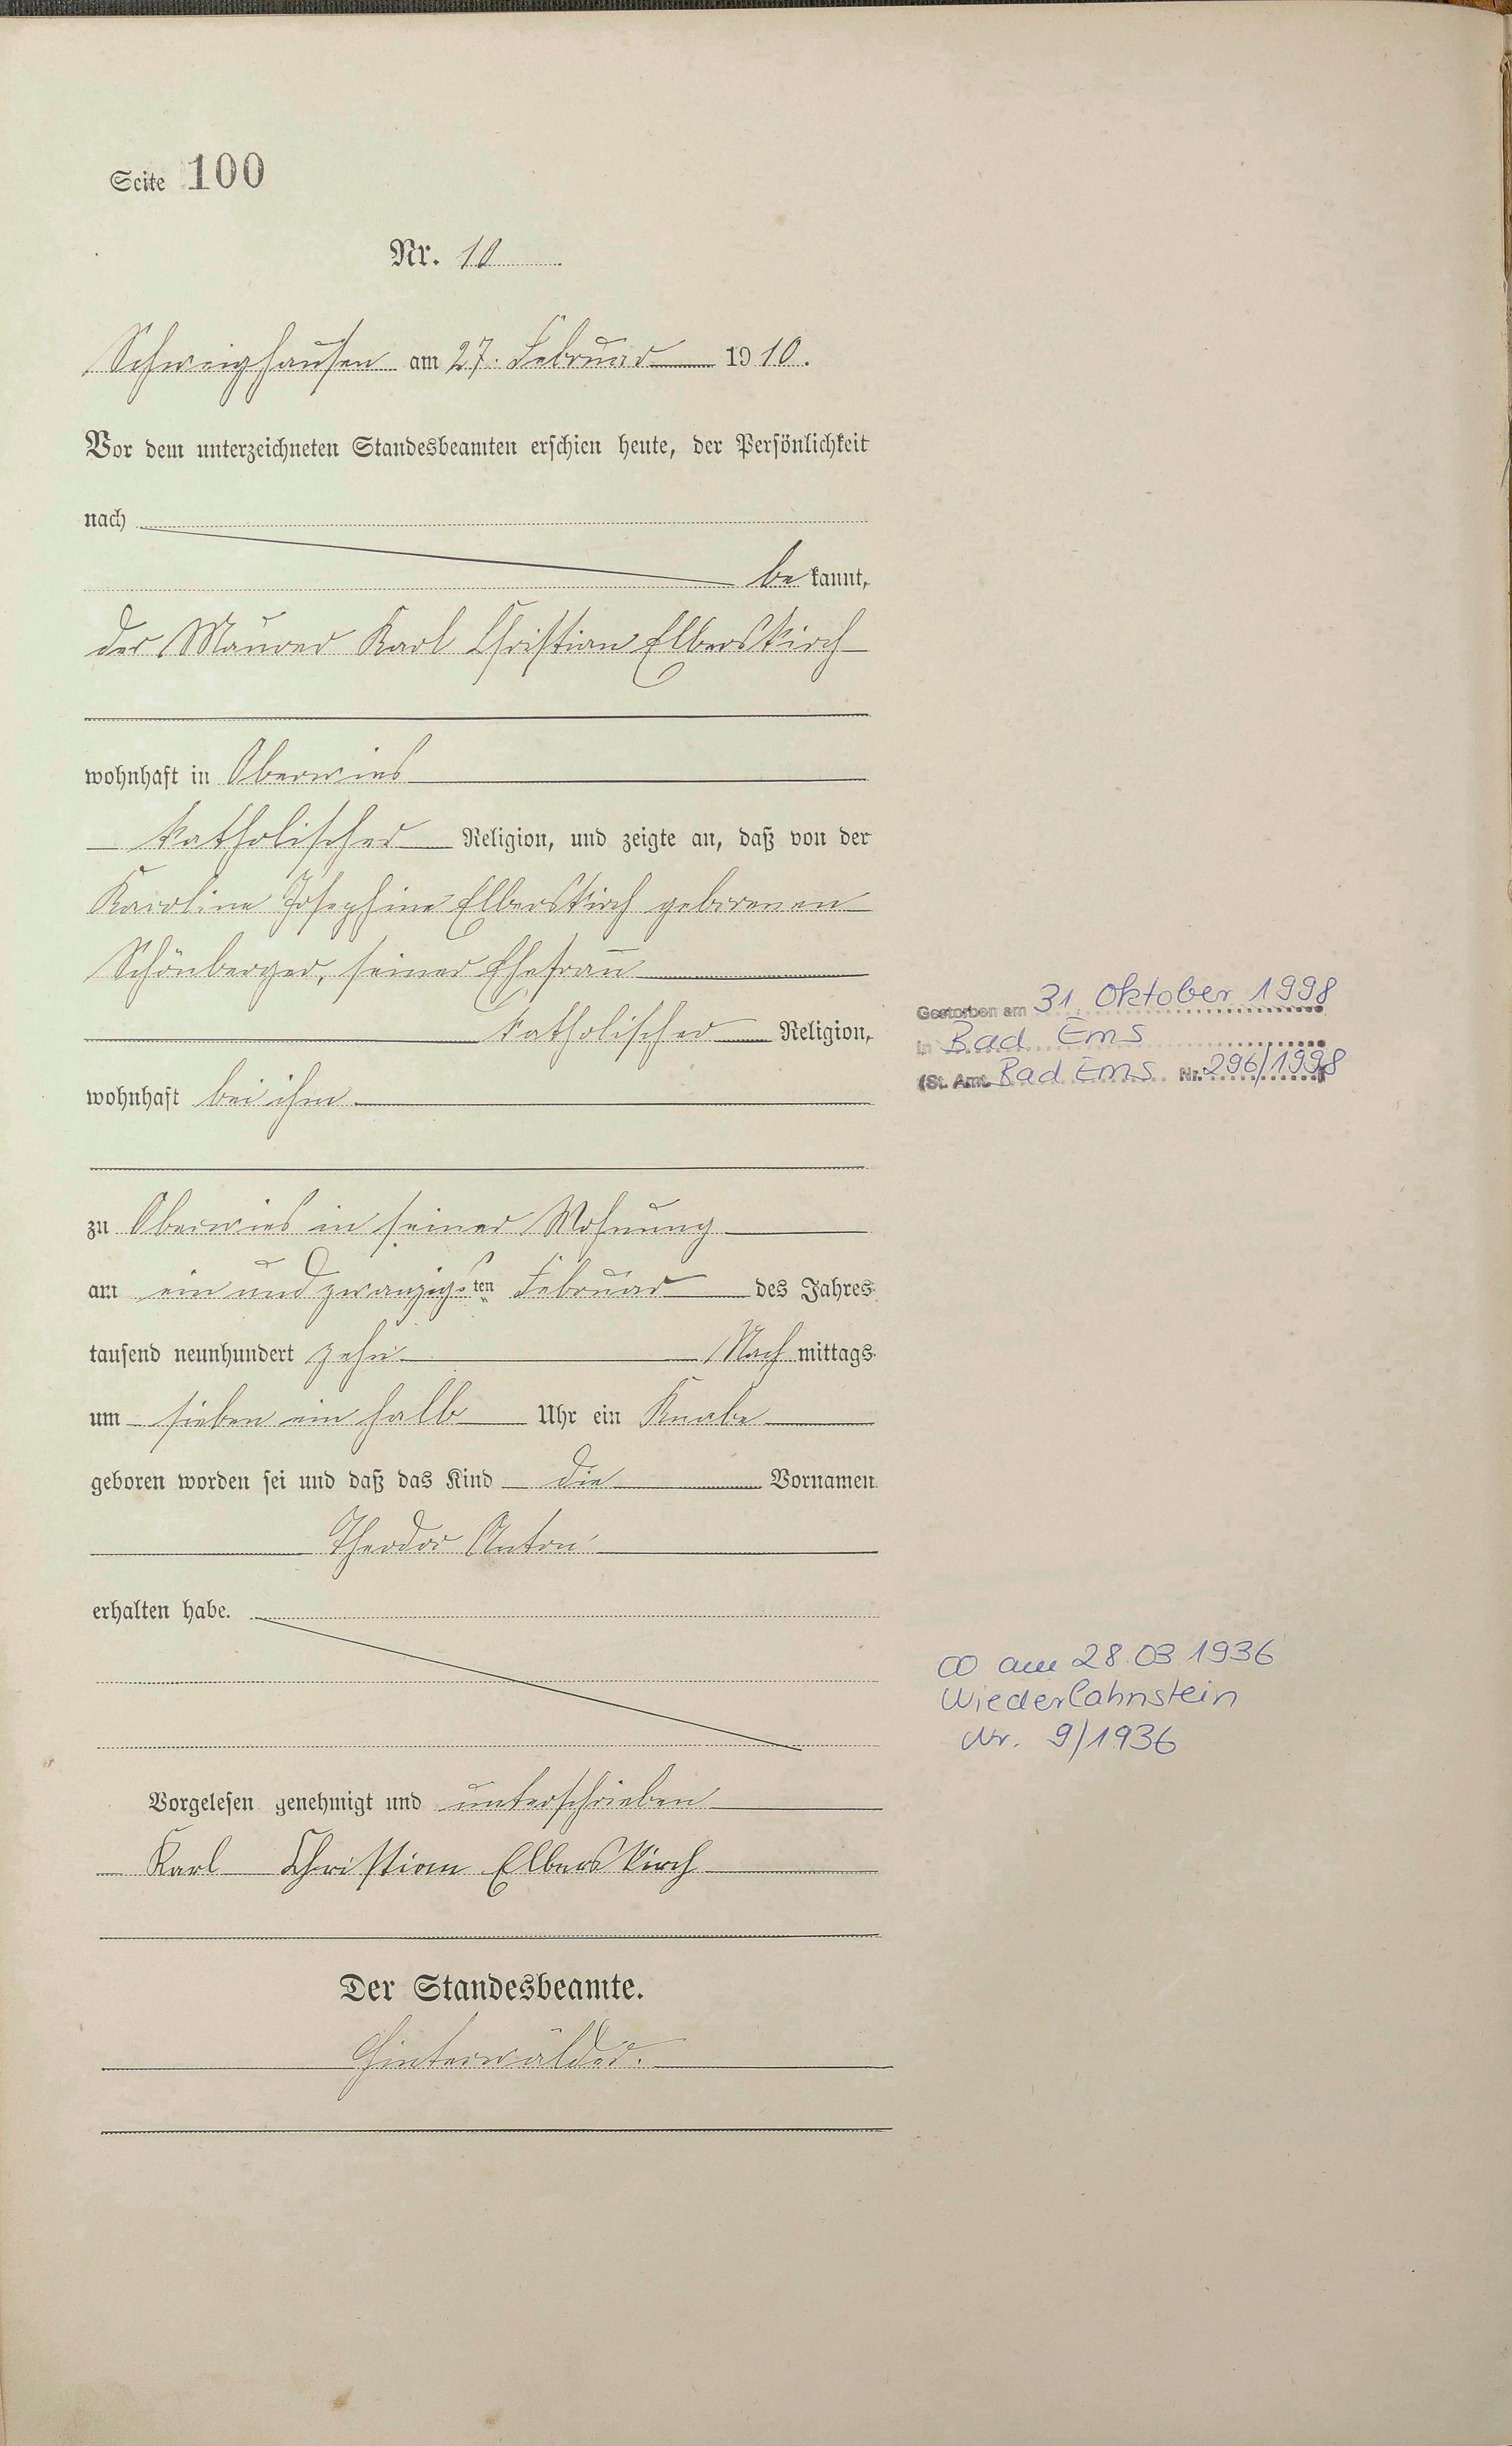 Seite 100
Nr. 10
Schweighausen am 27. Februar 1910.
Vor dem unterzeichneten Standesbeamten erschien heute, der Persönlichkeit
nach
bekannt,
der Maurer Karl Christian Elberskirch
wohnhaft in Oberwies
katholischer Religion, und zeigte an, daß von der
Karoline Josephine Elberskirch geborenen
Schönberger, seiner Ehefrau
katholischer Religion,
wohnhaft bei ihm
zu Oberwies in seiner Wohnung
am ein und zwanzigsten Februar des Jahres
tausend neunhundert zehn Nachmittags
um sieben ein halb Uhr ein Knabe
geboren worden sei und daß das Kind die Vornamen
Theodor Anton
erhalten habe.
Vorgelesen genehmigt und unterschrieben
Karl Christian Elberskirch
Der Standesbeamte.
Hinterwälder.
Gestorben am 31. Oktober 1998
in Bad Ems
(St. Amt Bad Ems Nr. 296/1998)
∞ am 28.03.1936
Niederlahnstein
Nr. 9/1936